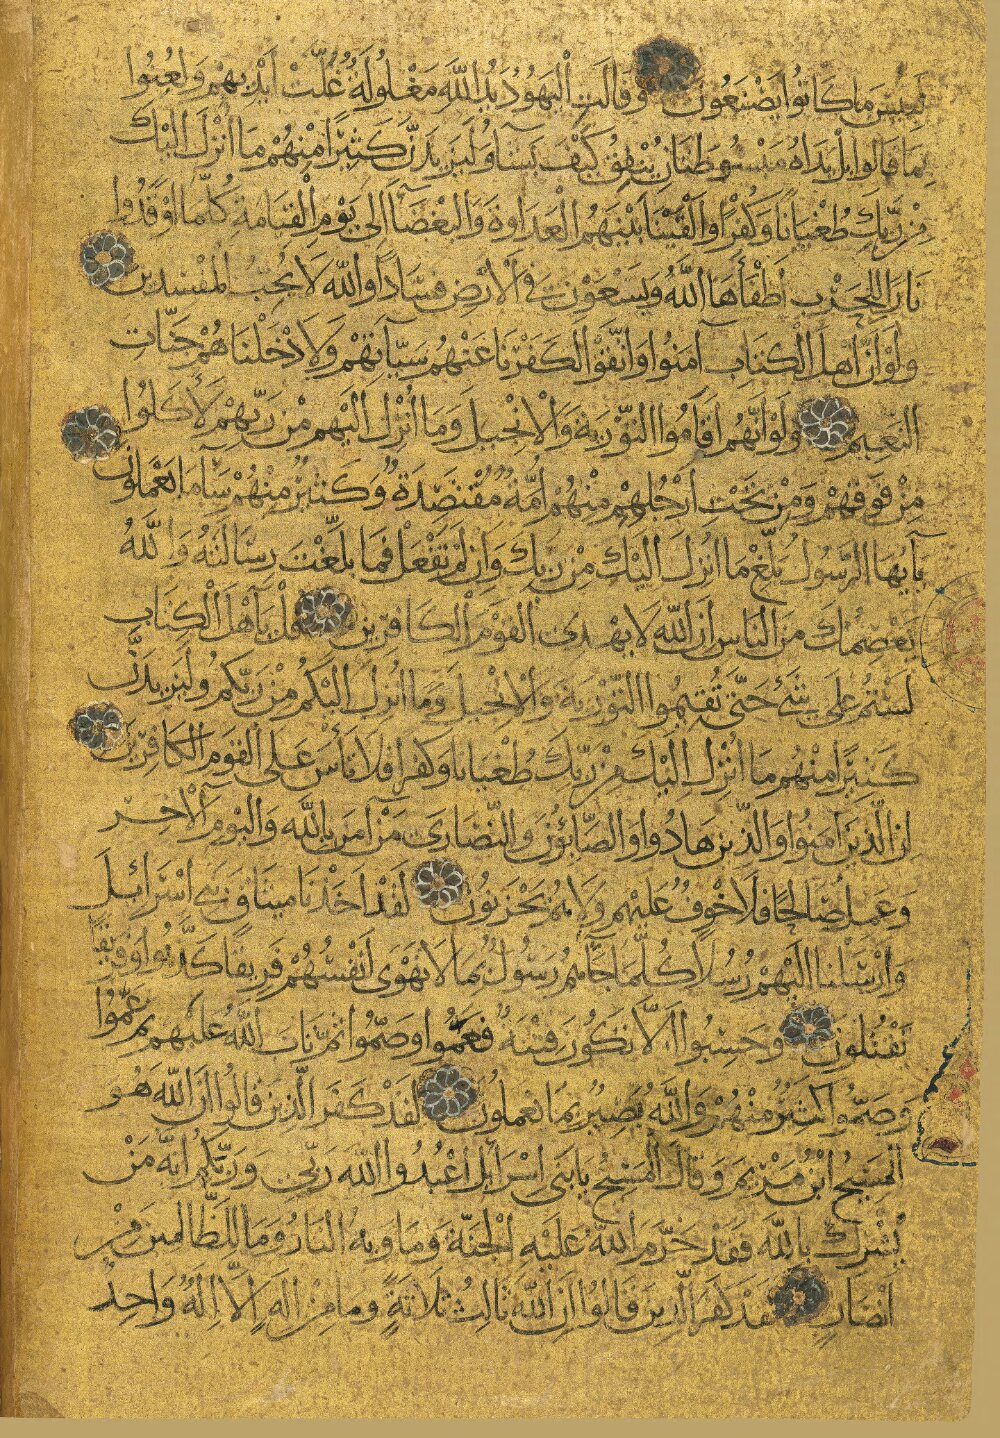 لَبِئْسَ مَا كَانُوا يَصْنَعُونَ وَقَالَتِ الْيَهُودُ يَدُ اللَّهِ مَغْلُولَةٌ غُلَّتْ أَيْدِيهِمْ وَلُعِنُوا
بِمَا قَالُوا بَلْ يَدَاهُ مَبْسُوطَتَانِ يُنْفِقُ كَيْفَ يَشَآءُ وَلَيَزِيدَنَّ كَثِيرًا مِنْهُمْ مَا أُنْزِلَ إِلَيْكَ
مِنْ رَبِّكَ طُغْيَانًا وَكُفْرًا وَأَلْقَيْنَا بَيْنَهُمُ الْعَدَاوَةَ وَالْبَغْضَآءَ إِلَى يَوْمِ الْقِيَامَةِ كُلَّمَا أَوْقَدُوا
نَارًا لِلْحَرْبِ أَطْفَأَهَا اللَّهُ وَيَسْعَوْنَ فِي الْأَرْضِ فَسَادًا وَاللَّهُ لَا يُحِبُّ الْمُفْسِدِينَ
وَلَوْ أَنَّ أَهْلَ الْكِتَابِ آمَنُوا وَاتَّقَوْا لَكَفَّرْنَا عَنْهُمْ سَيِّآتِهِمْ وَلَأَدْخَلْنَاهُمْ جَنَّاتِ
النَّعِيمِ وَلَوْ أَنَّهُمْ أَقَامُوا التَّوْرَيةَ وَالْإِنْجِيلَ وَمَا أُنْزِلَ إِلَيْهِمْ مِنْ رَبِّهِمْ لَأَكَلُوا
مِنْ فَوْقِهِمْ وَمِنْ تَحْتِ أَرْجُلِهِمْ مِنْهُمْ أُمَّةٌ مُقْتَصِدَةٌ وَكَثِيرٌ مِنْهُمْ سَآءَ مَا يَعْمَلُونَ
يَآ أَيُّهَا الرَّسُولُ بَلِّغْ مَا أُنْزِلَ إِلَيْكَ مِنْ رَبِّكَ وَإِنْ لَمْ تَفْعَلْ فَمَا بَلَّغْتَ رِسَالَتَهُ وَاللَّهُ
يَعْصِمُكَ مِنَ النَّاسِ إِنَّ اللَّهَ لَا يَهْدِي الْقَوْمَ الْكَافِرِينَ قُلْ يَآ أَهْلَ الْكِتَابِ
لَسْتُمْ عَلَى شَيْءٍ حَتَّى تُقِيمُوا التَّوْرَيةَ وَالْإِنْجِيلَ وَمَا أُنْزِلَ إِلَيْكُمْ مِنْ رَبِّكُمْ وَلَيَزِيدَنَّ
كَثِيرًا مِنْهُمْ مَا أُنْزِلَ إِلَيْكَ مِنْ رَبِّكَ طُغْيَانًا وَكُفْرًا فَلَا تَأْسَ عَلَى الْقَوْمِ الْكَافِرِينَ
إِنَّ الَّذِينَ آمَنُوا وَالَّذِينَ هَادُوا وَالصَّابِئُونَ وَالنَّصَارَى مَنْ آمَنَ بِاللَّهِ وَالْيَوْمِ الْآخِرِ
وَعَمِلَ صَالِحًا فَلَا خَوْفٌ عَلَيْهِمْ وَلَا هُمْ يَحْزَنُونَ لَقَدْ أَخَذْنَا مِيثَاقَ بَنِي إِسْرَائِيلَ
وَأَرْسَلْنَا إِلَيْهِمْ رُسُلًا كُلَّمَا جَآءَهُمْ رَسُولٌ بِمَا لَا تَهْوَى أَنْفُسُهُمْ فَرِيقًا كَذَّبُوا وَفَرِيقًا
يَقْتُلُونَ وَحَسِبُوا أَلَّا تَكُونَ فِتْنَةٌ فَعَمُوا وَصَمُّوا ثُمَّ تَابَ اللَّهُ عَلَيْهِمْ ثُمَّ عَمُوا
وَصَمُّوا كَثِيرٌ مِنْهُمْ وَاللَّهُ بَصِيرٌ بِمَا يَعْمَلُونَ لَقَدْ كَفَرَ الَّذِينَ قَالُوا إِنَّ اللَّهَ هُوَ
الْمَسِيحُ ابْنُ مَرْيَمَ وَقَالَ الْمَسِيحُ يَا بَنِي إِسْرَائِيلَ اعْبُدُوا اللَّهَ رَبِّي وَرَبَّكُمْ إِنَّهُ مَنْ
يُشْرِكْ بِاللَّهِ فَقَدْ حَرَّمَ اللَّهُ عَلَيْهِ الْجَنَّةَ وَمَأْوَيهُ النَّارُ وَمَا لِلظَّالِمِينَ مِنْ
أَنْصَارٍ لَقَدْ كَفَرَ الَّذِينَ قَالُوا إِنَّ اللَّهَ ثَالِثُ ثَلَاثَةٍ وَمَا مِنْ إِلَهٍ إِلَّا إِلَهٌ وَاحِدٌ